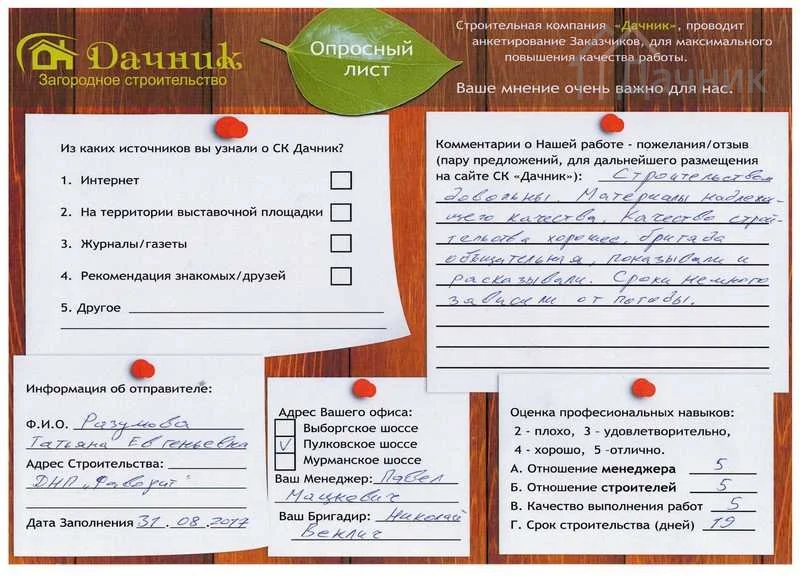 Дачник
Загородное строительство
Опросный
лист
Строительная компания «Дачник», проводит
анкетирование Заказчиков, для максимального
повышения качества работы.
Дачник
Ваше мнение очень важно для нас.
Из каких источников вы узнали о СК Дачник?
1. Интернет
2. На территории выставочной площадки
3. Журналы/газеты
4. Рекомендация знакомых/друзей
5. Другое
Комментарии о Нашей работе - пожелания/отзыв
(пару предложений, для дальнейшего размещения
на сайте СК «Дачник»): Строительством
довольны. Материалы надлежа-
щего качества. Качество строи-
тельства хорошее, бригада
общительная, показывали и
рассказывали. Сроки немного
зависели от погоды.
Информация об отправителе:
Ф.И.О. Разумова
Татьяна Евгеньевна
Адрес Строительства:
ДНП „Фаворит"
Дата Заполнения 31.08.2017
Адрес Вашего офиса:
Выборгское шоссе
V Пулковское шоссе
Мурманское шоссе
Ваш Менеджер: Павел
Мацкович
Ваш Бригадир: Николай
Оценка професиональных навыков:
2 - плохо, 3 - удовлетворительно,
4 - хорошо, 5 -отлично.
А. Отношение менеджера 5
Б. Отношение строителей 5
В. Качество выполнения работ 5
Г. Срок строительства (дней) 19